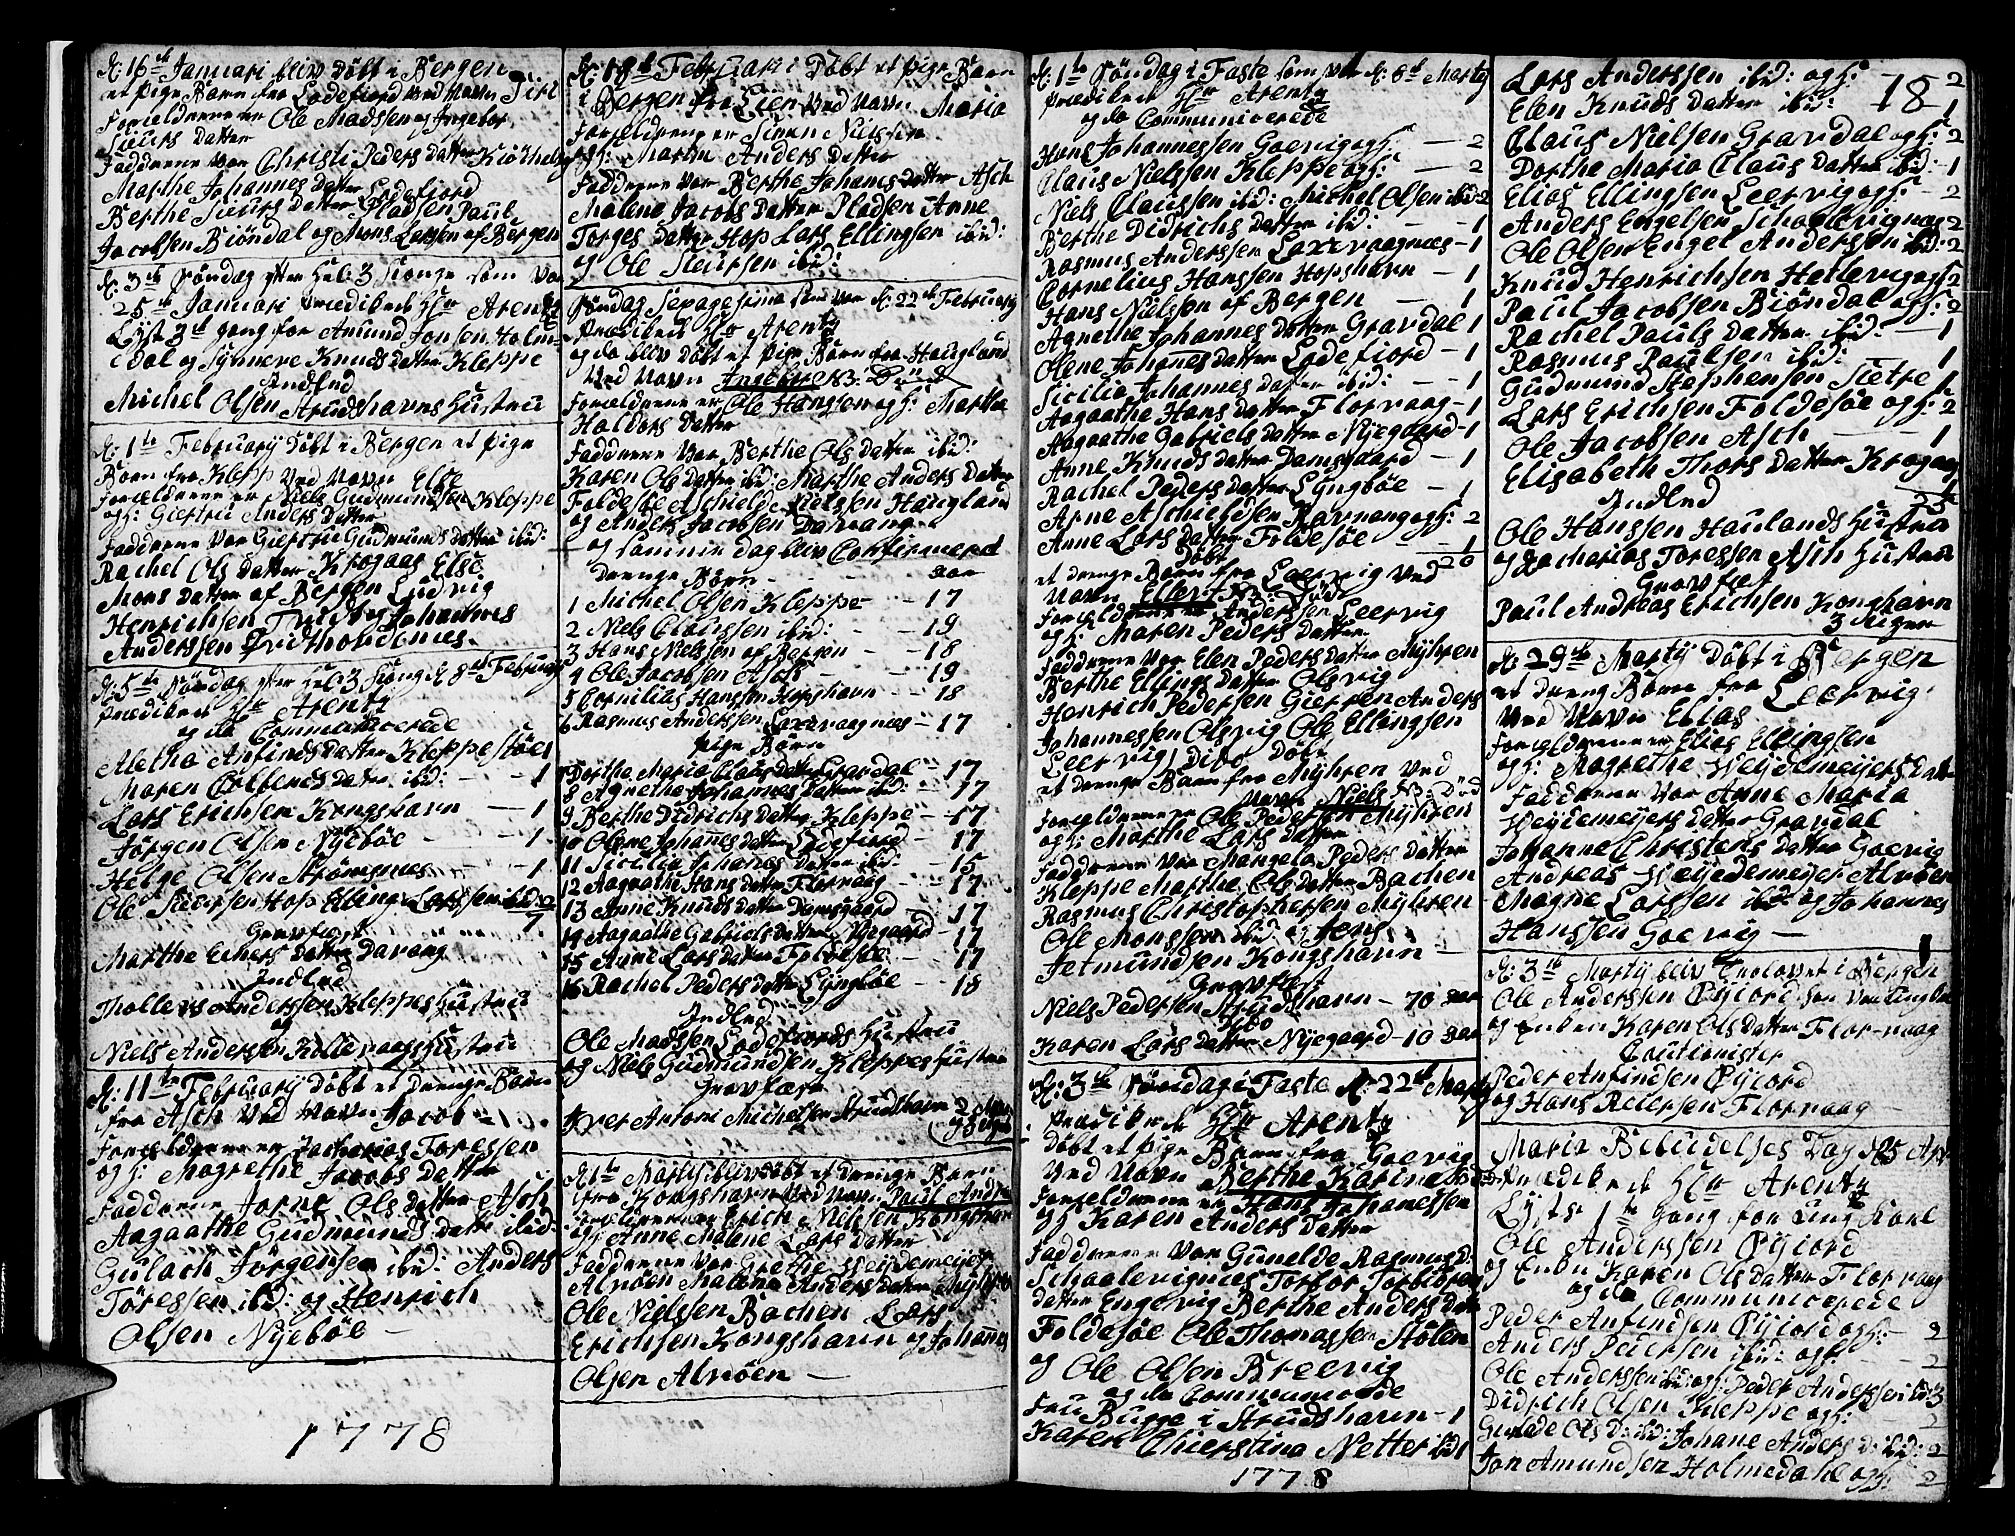 d: 16de Januari blev döbt i Bergen
et Pige Barn fra Lodefiord ved Navn Siri
Forældrene er Ole Madssen og Ingebor
Siurs Datter
Fadderne var Christi Peders Datter
Marthe Johannes Datter Lodefiord
Berthe Sieurs Datter Pladsen Paul
Jacobsen Biöndal og Mons Larsen af Bergen
d: 3de Söndag efter Hel: 3 Konge som var
25de Januari Prædikede Hr Arentz
Lyst 3de gang for Amund Jonsen Holm-
edal og Synneve Knuds Datter Kleppe
Indled
Michel Olsen Strudshavns Hustru
d: 1te February döbt i Bergen et Pige
Barn fra Klepp ved Navn Else
Forældrene er Niels Gudmundsen Kleppe
og H: Giertru Anders Datter
Fadderne var Giertru Gudmunds Datter ibid:
Rachel Ols Datter Krogaas Else
Mons Datter af Bergen Ludvig
Henrichsen Johannes
Anderssen
d: 5te Söndag efter Hel: 3 Kong d: 8de February
Prædikede Hr Arentz
og da Communicerede
Aletha Anfinds Datter Kleppestöen
Maren Colbends Datter ibid: - 1
Lars Erichsen Kongshavn - 1
Jörgen Olsen Nyeböe - 1
Helge Olsen Strömsnes - 1
Ole Sieursen Hop Elling Larssen ibid: 2
7
Gravfæst
Marthe Echers Datter Davang
Indled
Tholleus Anderssen Kleppes Hustru
og
Niels Anderssen Hustru
d: 11te February döbt et Drenge Barn
fra Asch ved Navn Jacob
Forældrene er Zacharias Toressen
og H: Magrethe Jacobs Datter
Fadderne Ols Datter Asch
Aagaathe Gudmunds Datt: ibid:
Gulach Jörgensen ibid: Anders
Töressen ibid: og Henrich
Olsen Nyeböe
1778
d: 18de February döbt et Pige Barn
i Bergen fra Lien ved Navn Maria
Forældrene er Siven Nielssen
og H: Marthe Anders Datter
Fadderne var Berthe Johannes Datter Asch
Malene Jacobs Datter Pladsen Anne
Torges Datter Hop Lars Ellingsen ibid:
og Ole Sieursen ibid:
Söndag Sexagesima som var d: 22de February
Prædikede Hr Arentz
og da blev döbt et Pige Barn fra Haugland
ved Navn Ingebor NB: Död
Forældrene er Ole Hanssen og H: Martha
Haldors Datter
Fadderne var Berthe Ols Datter ibid:
Karen Ols Datter ibid: Marthe Anders Datter
Foldesöe Aschield Nielssen Haugland
og Anders Jacobsen Davang
og samme dag blev Confirmered
Drenge Börn - aar
1 Michel Olsen Kleppe - 17
2 Niels Claussen ibid: - 19
3 Hans Nielssen af Bergen - 18
4 Ole Jacobsen Asch - 19
5 Cornilius Hanssen Hopshavn - 18
6 Rasmus Anderssen Laxevaagnæs - 17
Pige Börn
7 Dorthe Maria Claus Datter Gravdal - 17
8 Agnethe Johannes Datter ibid: - 17
9 Berthe Didrichs Datter Kleppe - 17
10 Olene Johannes Datter Lodefiord - 17
11 Sicilia Johanes Datter ibid: - 15
12 Aagaathe Hans Datter Florvaag - 17
13 Anne Knuds Datter Damsgaard - 17
14 Aagaathe Gabriels Datter Nyegaard - 17
15 Anne Lars Datter Foldesöe - 17
16 Rachel Peders Datter Lyngböe - 18
Indled
Ole Madssen Lodefiords Hustru
og Niels Gudmundsen Kleppes Hustru
Gravfæst
Iver Antoni Michelsen Strudshavn 2
d: 1te Marty blev döbt et Drenge Barn
fra Kongshavn ved Navn Paul Andrea
Forældrene er Erich Nilssen Kongshavn
og H: Anne Malene Lars Datter
Fadderne var Grethe Weydemeyer
Alvöen Malene Anders Datter
Ole Nielssen Bachen Lars
Erichsen Kongshavn og Johannes
Olsen Alvöen
d: 1te Söndag i Faste som var d: 8de Marty
Prædikede Hr Arentz
og da Communicerede
Hans Johannessen Goevig og H: - 2
Claus Nielssen Kleppe og H: - 2
Niels Claussen ibid: Michel Olsen ibid: 2
Berthe Didrichs Datter ibid: - 1
Rasmus Anderssen Laxevaagnæs - 1
Cornelius Hanssen Hopshavn - 1
Hans Nielsen af Bergen - 1
Agnethe Johannes Datter Gravdal 1
Olene Johanes Datter Lodefiord - 1
Sicilia Johannes Datter ibid: - 1
Aagaathe Hans Datter Florvaag - 1
Aagaathe Gabriels Datter Nyegaard - 1
Anne Knuds Datter Damsgaard - 1
Rachel Peders Datter Lyngböe - 1
Arne Aschieldsen Ravnang og H: 2
Anne Lars Datter Foldesöe - 1
20
Döbt
et Drenge Barn fra Leervig ved
Navn Ellert NB: Död
Forældrene er Anderssen Leervig
og H: Maren Peders Datter
Fadderne var Elen Peders Datter Myhren
Berthe Ellings Datter Olsvig
Henrich Pedersen Anders
Johannessen Olsvig Ole Ellingsen
Leervig, Dito Döbt
et Drenge Barn fra Myhren ved
Navn Niels NB: Död
Forældrene er Ole Pedersen Myhren
og H: Marthe Lars Datter
Fadderne var Mangela Peders Datter
Kleppe Marthe Ols Datter Bachen
Rasmus Christophersen Myhren
Ole Monssen ibid: og Jens
Jetmundsen Kongshavn
Gravfæst
Niels Pedersen Strudshavn - 70 aar
Dito
Karen Lars Datter Nyegaard - 10 aar
d: 3de Söndag i Faste d: 22de Marty
Prædikede Hr Arentz
Döbt et Pige Barn fra Goevig
ved Navn Berthe Karina
Forældrene er Hans Johannessen
og H: Karen Anders Datter
Fadderne var Gunelde Rasmus D:
Schaalevignæs Torbor Torbiörns
Datter Engevig Berthe Anders Dat:
Foldesöe Ole Thomassen Stölen
og Ole Olsen Breevig
og da Communicerede
Fru Bugge i Strudshavn - 1
Karen Chierstina Netter ibid 1
1778
Lars Anderssen ibid: og H: 2
Elen Knuds Datter ibid: 1
18
Claus Nielsen Gravdal og H: 2
Dorthe Maria Claus Datter ibid: 1
Elias Ellingsen Leervig og H: 2
Anders Engelsen Schaalevignæs 2
Ole Olsen Engel Anderssen ibid: 2
Knud Henrichsen Hetlevig og H: 2
Paul Jacobsen Biöndal og H: 2
Rachel Pauls Datter ibid: - 1
Rasmus Paulsen ibid: 1
Gudmund Stephensen Sietre 1
Lars Erichsen Foldesöe og H: 2
Ole Jacobsen Asch - 1
Elisabeth Thors Datter Krogaas 1
Indled
Ole Hanssen Haulands Hustru
og Zacharias Toressen Asch Hustru
Gravfæst
Paul Andreas Erichsen Kongshavn
3 Uger
d: 29de Marty Döbt i Bergen
et Dreng Barn fra Leervig
ved Navn Elias
Forældrene er Elias Ellingsen
og H: Magrethe Weydemeyers Dat-
Fadderne var Anne Maria
Weydemeyers Datter Gravdal
Johanne Christens Datter Goevig
Andreas Weydemeyer Alvöen
Magne Larssen ibid: og Johannes
Hanssen Goevig
d: 3de Marty blev Trolovet i Bergen
Ole Anderssen
og Enken Karen Ols Datter Florvaag
Cautionister
Peder Anfindsen
og Hans Reiersen Florvaag
Maria Bebudelses Dag d: 25
Prædikede Hr Arentz
Lyste 1te Gang for Ung Karl
Ole Anderssen
og Enken Karen Ols Datter Florvaag
og da Communicerede
Peder Anfindsen og H: - 2
Anders Pedersen ibid: og H: - 2
Ole Anderssen ibid: og H: Peder Anderssen ibid: 3
Didrich Olsen Kleppe og H: - 2
Gunilde Ols D: ibid: Johane Anders D: ibid: 2
Jon Amundsen Holmedahl og H: 2